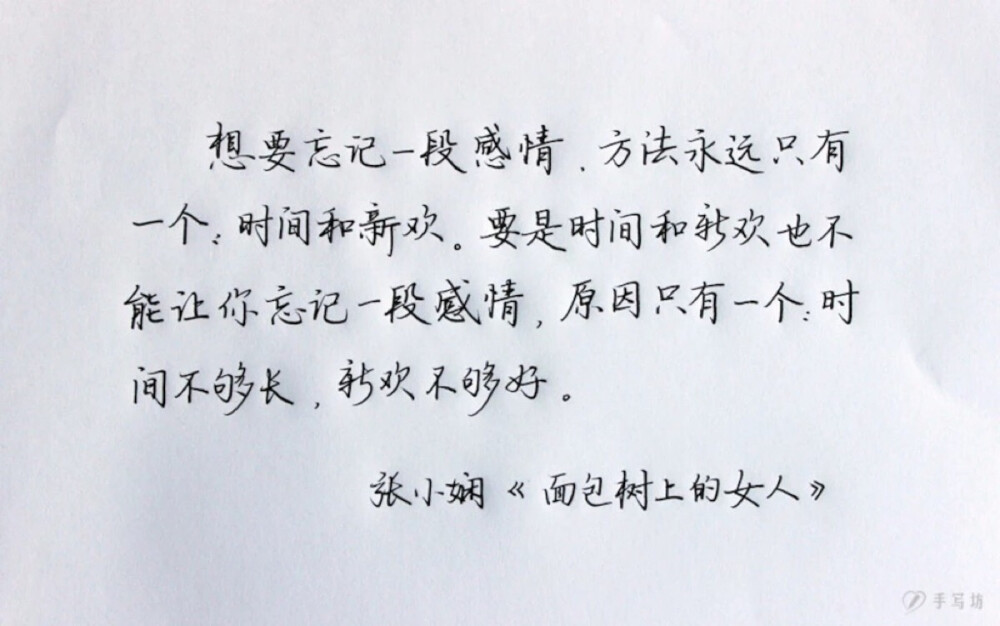 想要忘记一段感情，方法永远只有
一个：时间和新欢。要是时间和新欢也不
能让你忘记一段感情，原因只有一个：时
间不够长，新欢不够好。
张小娴《面包树上的女人》
手写坊